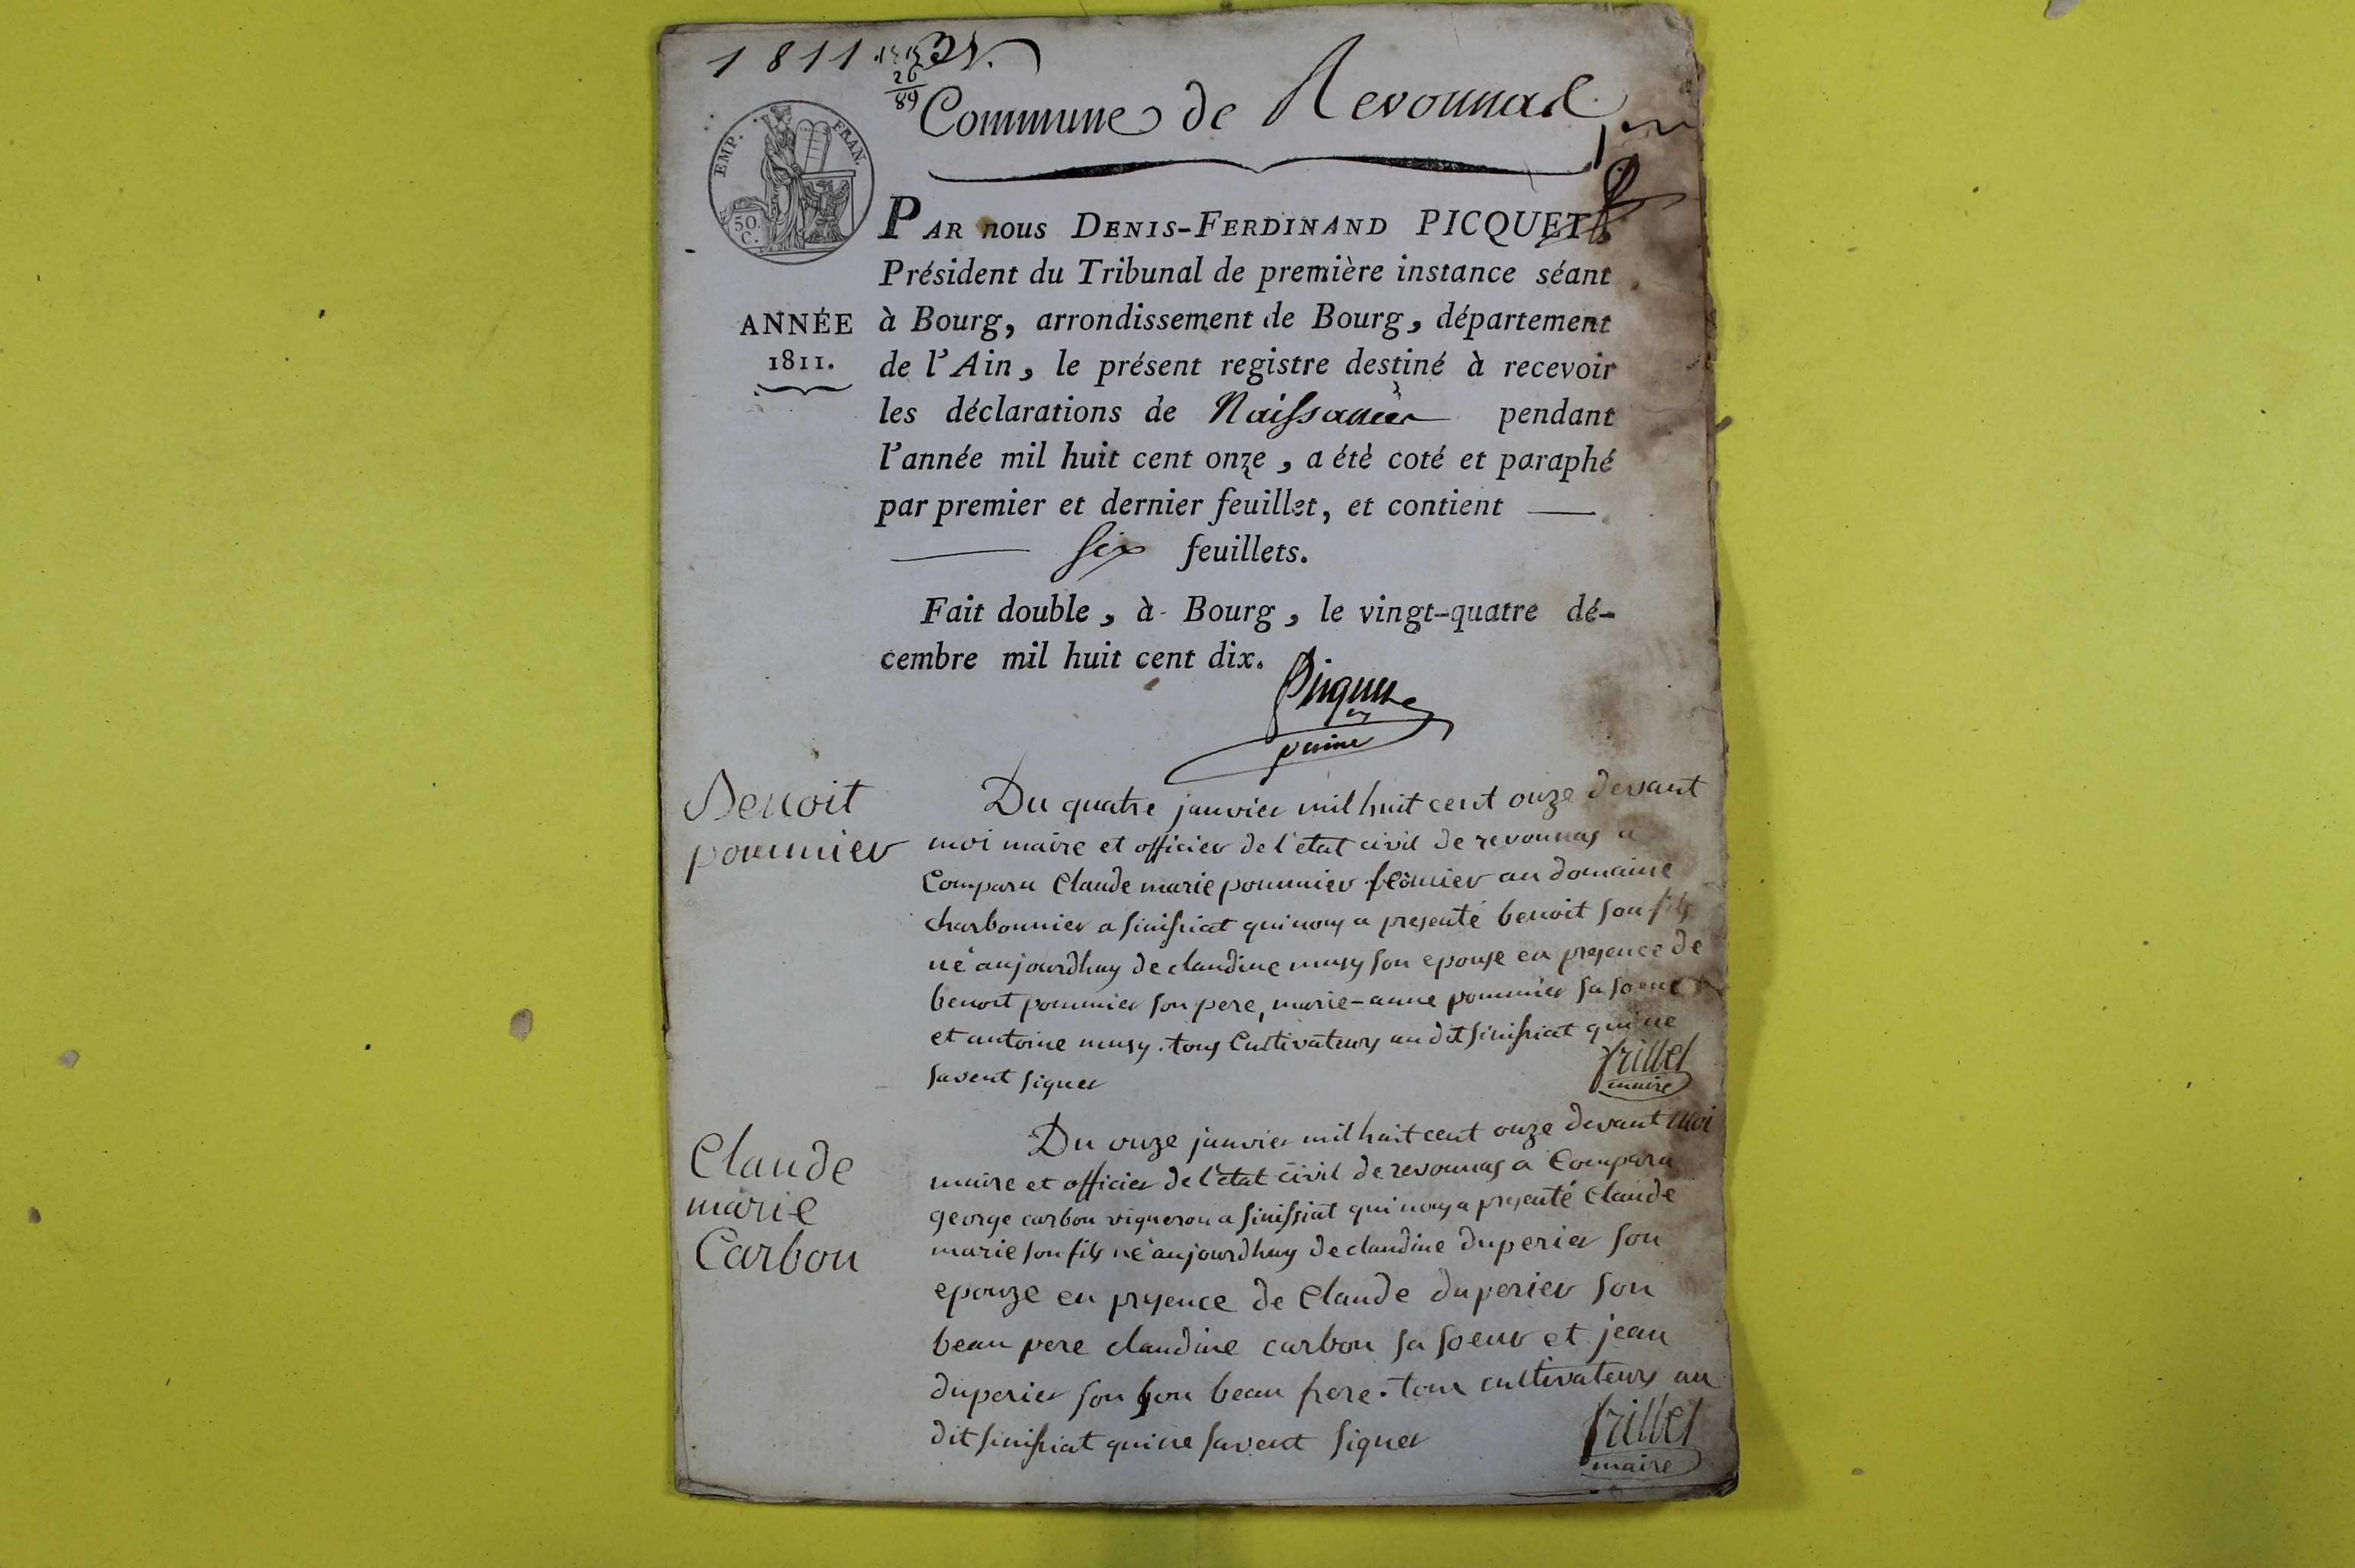 1811
26
89
Commune de Revonnas
EMP. FRAN.
50
C.
PAR nous DENIS-FERDINAND PICQUET
Président du Tribunal de première instance séant
ANNÉE
1811.
à Bourg, arrondissement de Bourg, département
de l'Ain, le présent registre destiné à recevoir
les déclarations de Naissances pendant
l'année mil huit cent onze, a été coté et paraphé
par premier et dernier feuillet, et contient
six feuillets.
Fait double, à Bourg, le vingt-quatre dé-
cembre mil huit cent dix.
Picquet
Benoit
pommier
Du quatre janvier mil huit cent onze devant
moi maire et officier de l'etat civil de revonnas a
Comparu Claude marie pommier au domaine
charbonnier a sinissiat qui nous a presenté benoit son fils
né aujourdhuy de claudine musy son epouse en presence de
benoit pommier son pere, marie-anne pommier sa soeur
et antoine musy. tous Cultivateurs au dit sinissiat qui ne
savent signer
frillet
maire
Claude
marie
Carbon
Du onze janvier mil huit cent onze devant moi
maire et officier de l'etat civil de revonnas a Comparu
george carbon vigneron a sinissiat qui nous a presenté Claude
marie son fils né aujourdhuy de claudine duperier son
epouze en presence de Claude duperier son
beau pere claudine carbon sa soeur et jean
duperier son son beau frere. tous cultivateurs au
dit sinissiat qui ne savent signer
frillet
maire